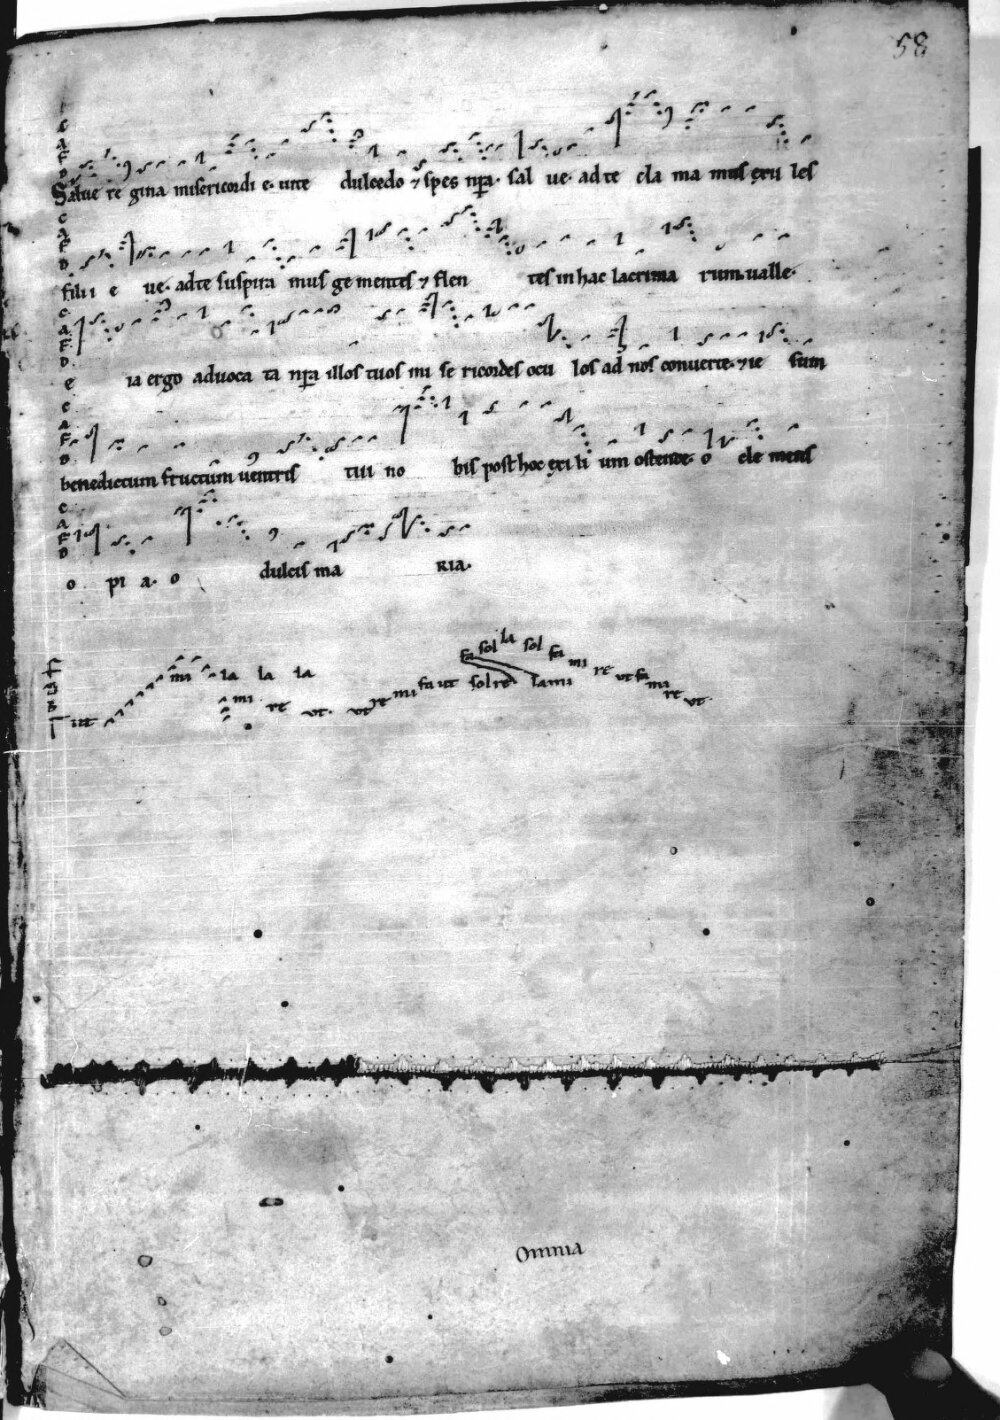 58
e
c
a
F
D
Salue re gina misericordi e. uite dulcedo & spes nra. sal ue. ad te cla ma mus exu les
c
a
F
D
filii e ue. ad te suspira mus ge mentes & flen tes in hac lacrima rum ualle.
c
a
F
D
e ia ergo aduoca ta nra illos tuos mi se ricordes ocu los ad nos conuerte. & ie sum
c
a
F
D
benedictum fructum uentris tui no bis post hoc exi li um ostende. o cle mens
c
a
F
D
o pi a. o dulcis ma RIA.
fa sol la sol fa mi re ut fa mi re ut.
ut mi la la la mi re ut. ut re mi fa ut sol re la mi
Omnia